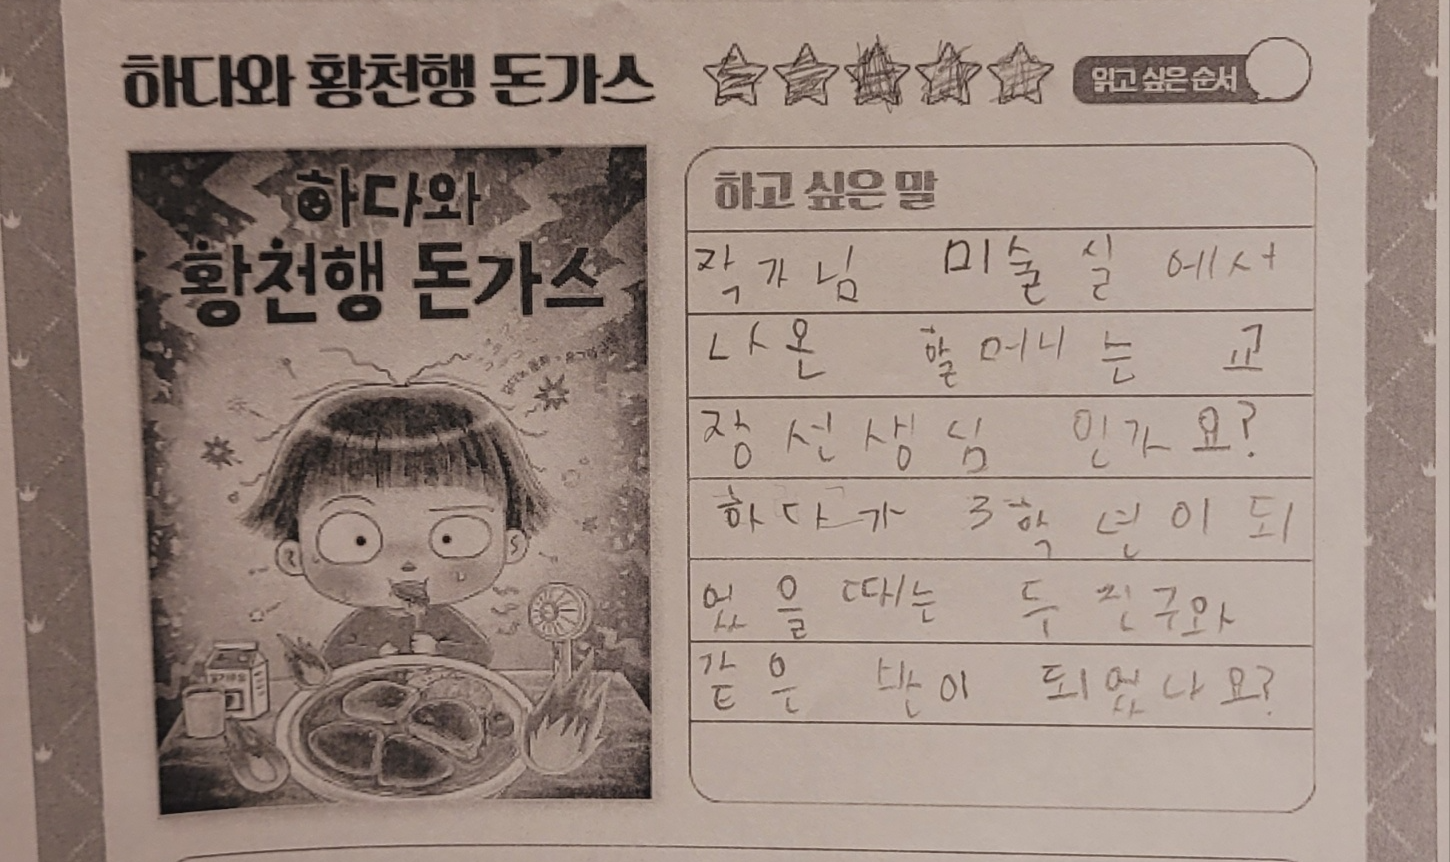 하다와 황천행 돈가스
읽고 싶은 순서
하다와
황천행 돈가스
하고 싶은 말
작가님 미술실에서
나온 할머니는 교
장선생님 인가요?
하다가 3학년이 되
었을때는 두 친구와
같은 반이 되었나요?